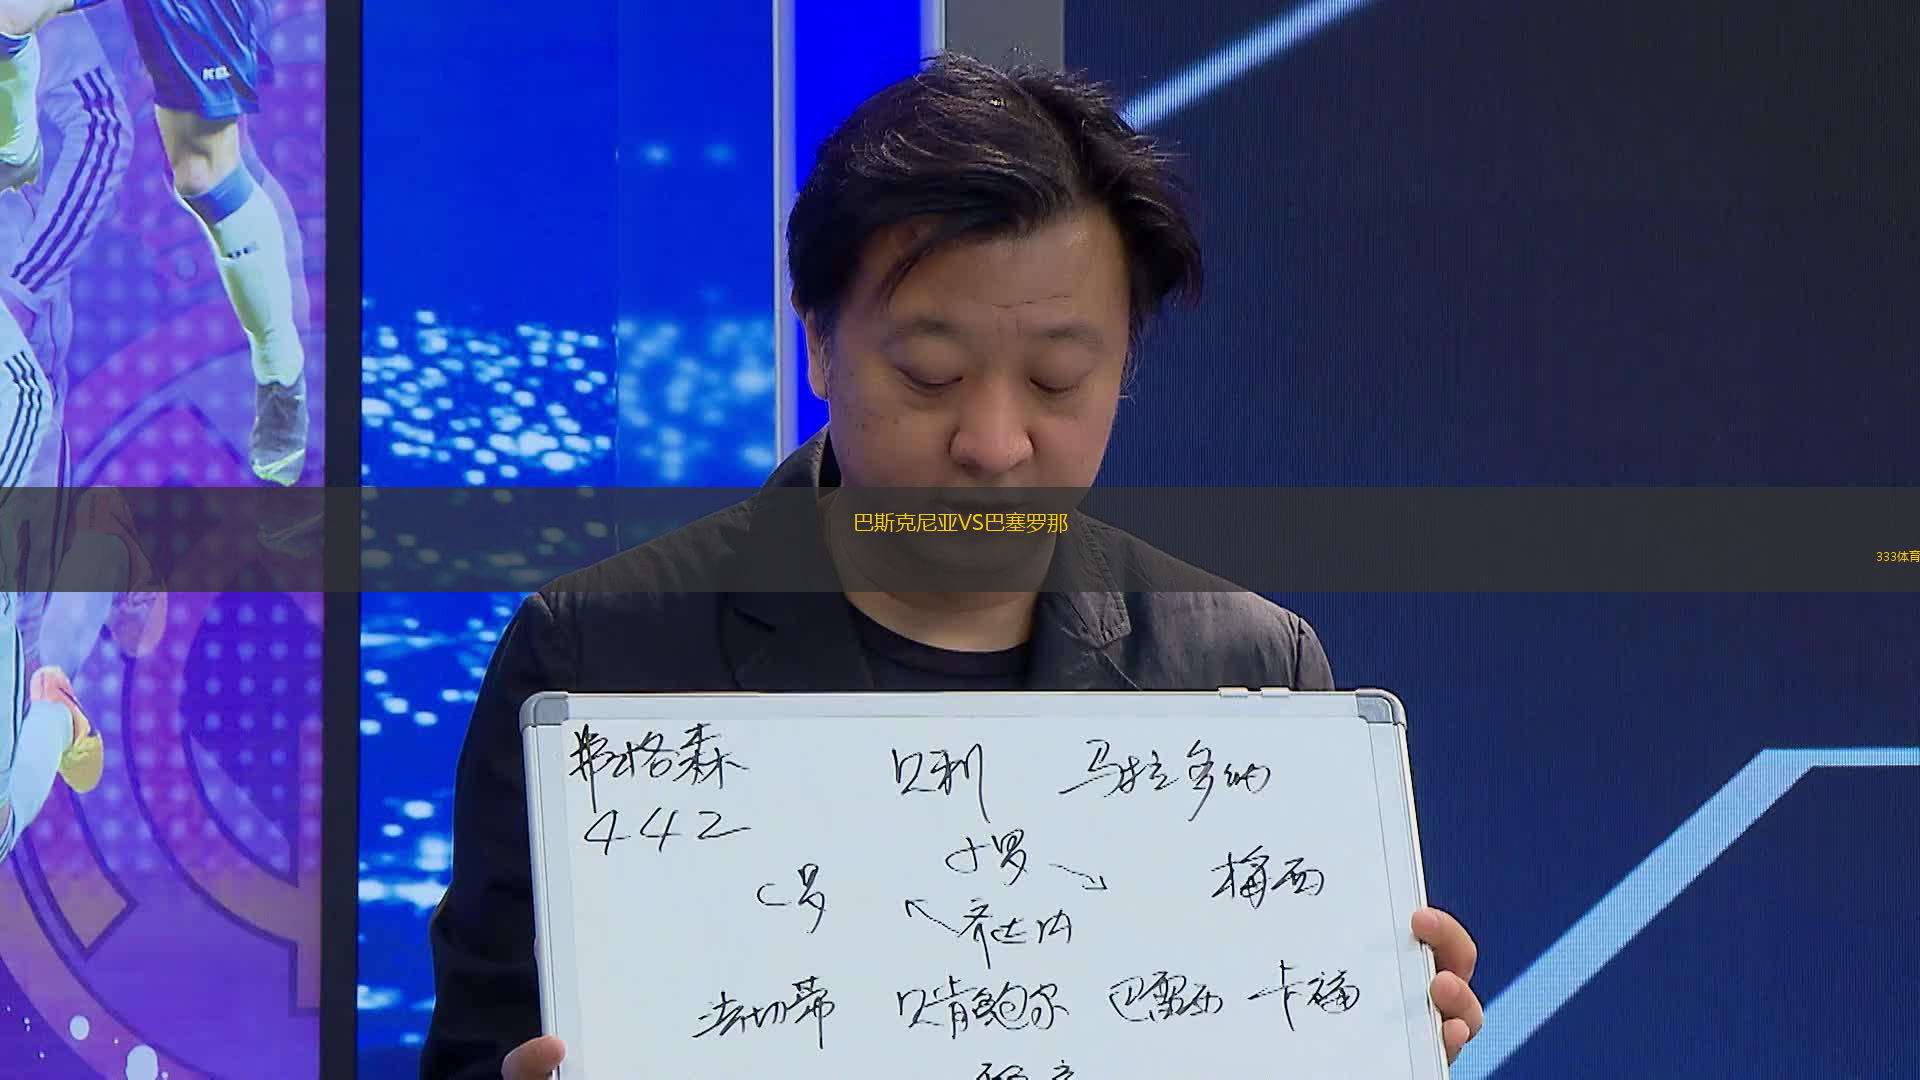 巴斯克尼亚VS巴塞罗那
333体育
弗格森 贝利 马拉多纳
442
小罗
C罗 梅西
齐达内
法切蒂 贝肯鲍尔 巴雷西 卡福